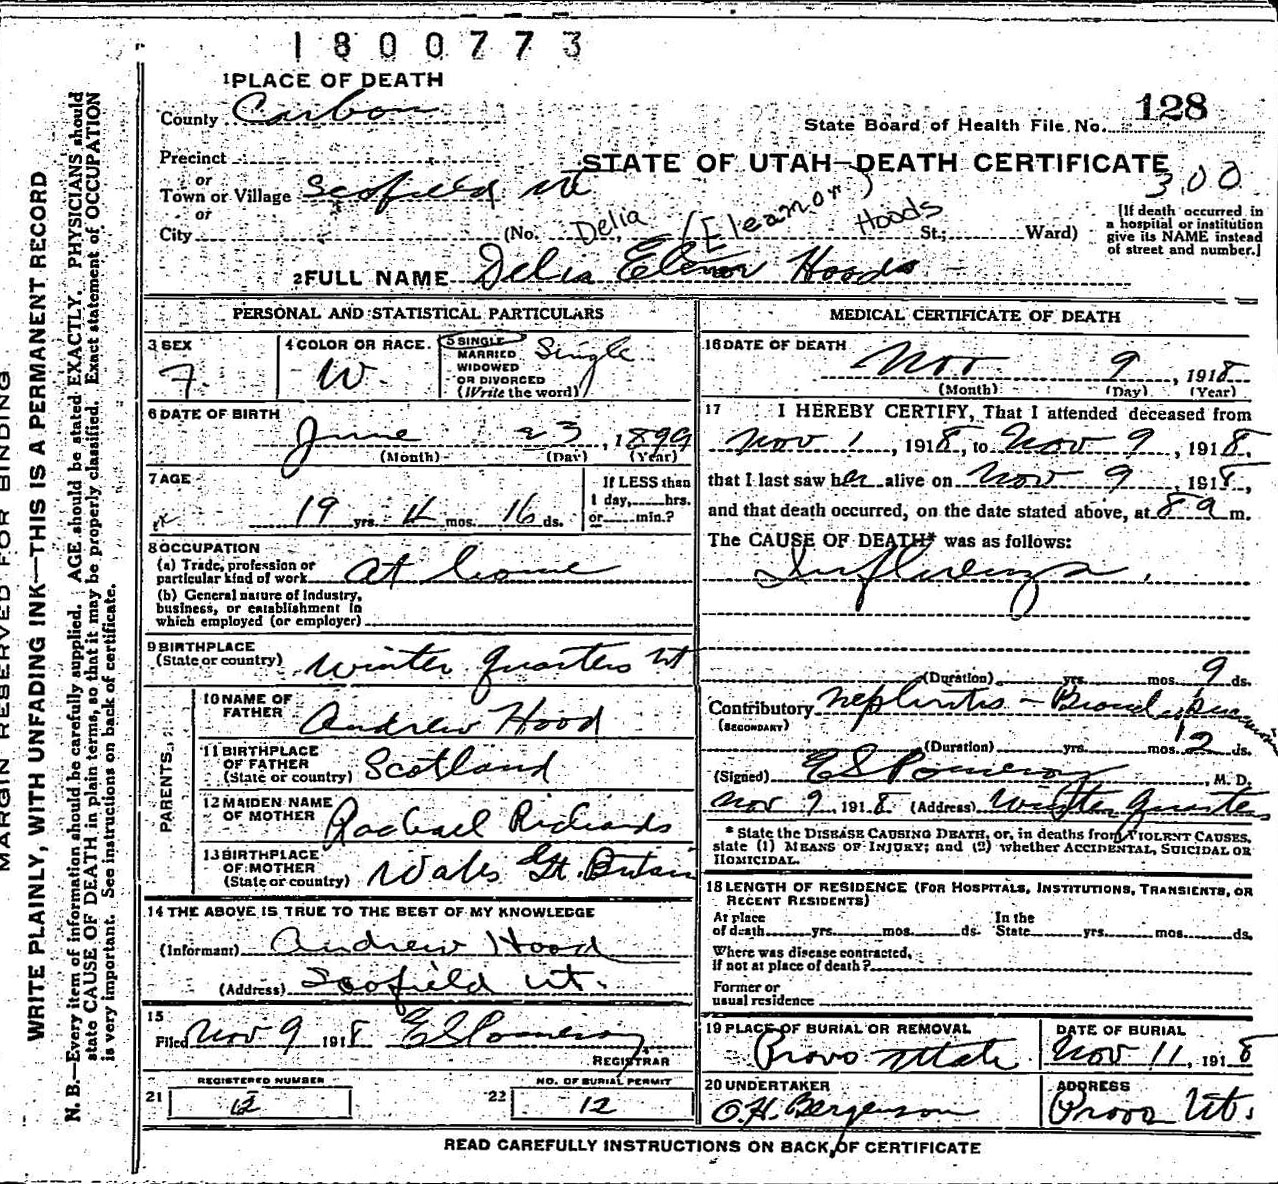 1800773
1 PLACE OF DEATH
County Carbon
128
State Board of Health File No.
Precinct
STATE OF UTAH—DEATH CERTIFICATE
or
Town or Village Scofield Ut
300
or
City (No. Delia (Eleanor) Hoods St.; Ward)
[If death occurred in
a hospital or institution
give its NAME instead
of street and number.]
2 FULL NAME Delia Elenor Hoods
PERSONAL AND STATISTICAL PARTICULARS
3 SEX
F.
4 COLOR OR RACE.
W.
5 SINGLE
MARRIED
WIDOWED
OR DIVORCED
(Write the word)
Single
6 DATE OF BIRTH
June 23, 1899
(Month) (Day) (Year)
7 AGE
19 yrs. 4 mos. 16 ds.
If LESS than
1 day, hrs.
or min.?
8 OCCUPATION
(a) Trade, profession or
particular kind of work At home
(b) General nature of Industry,
business, or establishment in
which employed (or employer)
9 BIRTHPLACE
(State or country) Winter Quarters Ut
PARENTS
10 NAME OF
FATHER Andrew Hood
11 BIRTHPLACE
OF FATHER
(State or country) Scotland
12 MAIDEN NAME
OF MOTHER Rachael Richards
13 BIRTHPLACE
OF MOTHER
(State or country) Wales Gt. Britain
14 THE ABOVE IS TRUE TO THE BEST OF MY KNOWLEDGE
(Informant) Andrew Hood
(Address) Scofield Ut.
15
Filed Nov 9 1918 E S Pomeroy
REGISTRAR
REGISTERED NUMBER
21 12
NO. OF BURIAL PERMIT
22 12
MEDICAL CERTIFICATE OF DEATH
16 DATE OF DEATH
Nov 9, 1918
(Month) (Day) (Year)
17 I HEREBY CERTIFY, That I attended deceased from
Nov 1, 1918, to Nov 9, 1918.
that I last saw her alive on Nov 9, 1918,
and that death occurred, on the date stated above, at 8 a m.
The CAUSE OF DEATH* was as follows:
Influenza.
(Duration) yrs. mos. 9 ds.
Contributory Nephritis -
(SECONDARY)
(Duration) yrs. mos. 2 ds.
(Signed) E S Pomeroy, M. D.
Nov 9, 1918 (Address) Winter Quarters
* State the DISEASE CAUSING DEATH, or, in deaths from VIOLENT CAUSES,
state (1) MEANS OF INJURY; and (2) whether ACCIDENTAL, SUICIDAL OR
HOMICIDAL.
18 LENGTH OF RESIDENCE (FOR HOSPITALS, INSTITUTIONS, TRANSIENTS, OR
RECENT RESIDENTS)
At place
of death yrs. mos. ds.
In the
State yrs. mos. ds.
Where was disease contracted,
if not at place of death?
Former or
usual residence
19 PLACE OF BURIAL OR REMOVAL
Provo Utah
DATE OF BURIAL
Nov 11, 1918
20 UNDERTAKER
O. H. Bergenson
ADDRESS
Provo Ut.
READ CAREFULLY INSTRUCTIONS ON BACK OF CERTIFICATE
MARGIN RESERVED FOR BINDING
WRITE PLAINLY, WITH UNFADING INK—THIS IS A PERMANENT RECORD
N. B.—Every item of information should be carefully supplied. AGE should be stated EXACTLY. PHYSICIANS should
state CAUSE OF DEATH in plain terms, so that it may be properly classified. Exact statement of OCCUPATION
is very important. See instructions on back of certificate.